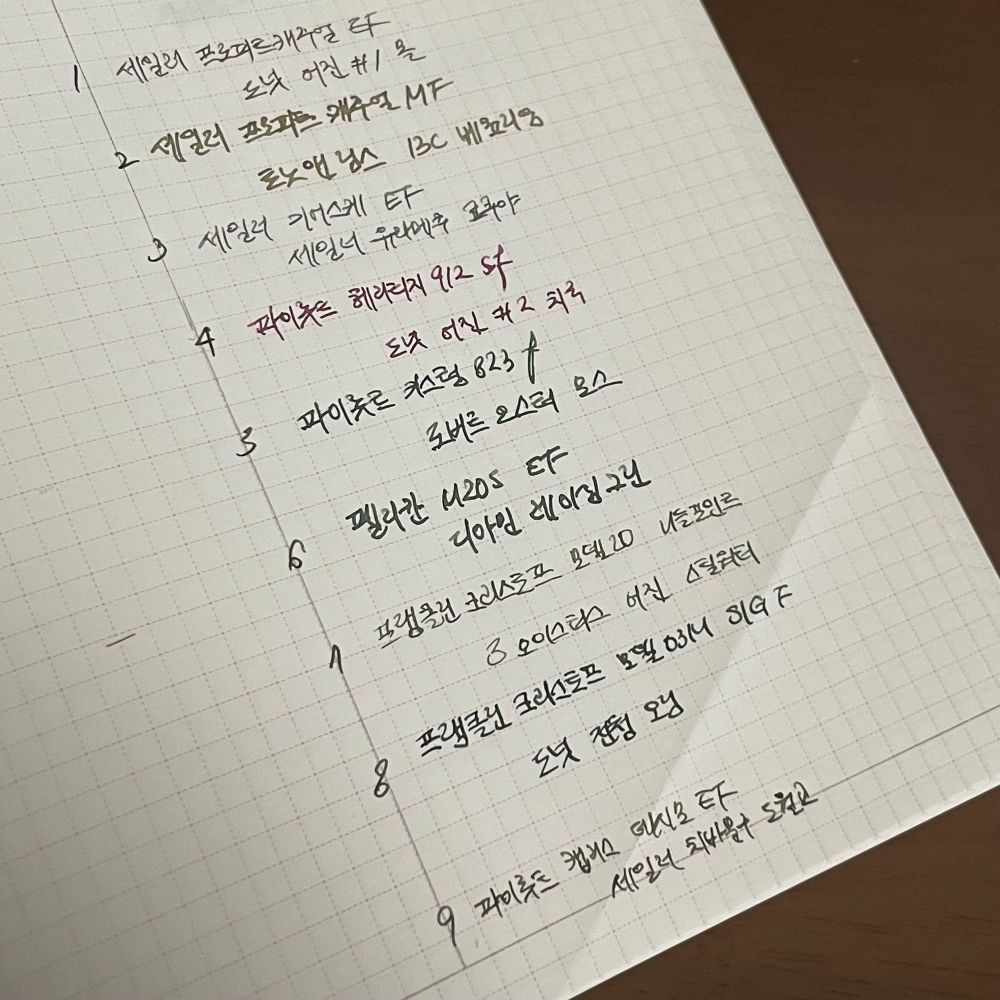 1 세일러 프로피트캐주얼 EF
도넛 어진 #1 울
2 세일러 프로피트 캐주얼 MF
토노앤님스 13C 베쿄리움
3 세일러 키어스케 EF
세일너 유라메쿠 코쿠야
4 파이롯트 헤리티지 912 Sf
도넛 어진 #2 치푸
5 파이롯트 커스텀 823 f
로버트 오스터 모스
6 펠리칸 M205 EF
디아민 레이싱그린
7 프랭클린 크리스토프 모델20 니들포인트
3 오이스터스 어진 스틸워터
8 프랭클린 크리스토프 모델03M SIG F
도넛 잔청 오닝
9 파이롯트 캡리스 데시모 EF
세일러 치바울루 도원고